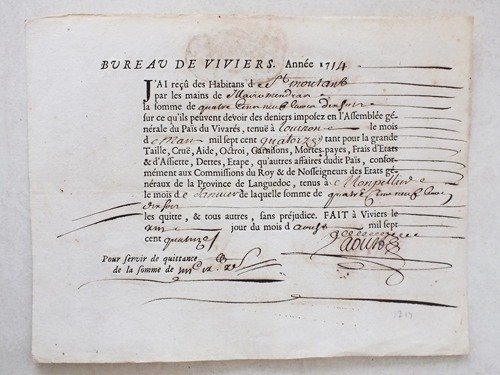 BUREAU DE VIVIERS. Année 1714
J'AI reçû des Habitans de St montant
par les mains de
la somme de quatre Cens neuf livres dix sols
sur ce qu'ils peuvent devoir des deniers imposez en l'Assemblée géné-
rale du Païs du Vivarés, tenuë à tournon le mois
de May mil sept cent quatorze tant pour la grande
Taille, Cruë, Aide, Octroi, Garnisons, Mortes-payes, Frais d'Etats
& d'Assiette, Dettes, Etape, qu'autres affaires dudit Païs, confor-
mément aux Commissions du Roy & de Nosseigneurs des Etats gé-
néraux de la Province de Languedoc, tenus à Montpellier
le mois de Janvier de laquelle somme de quatre Cens neuf livres
dix sols
les quitte, & tous autres, sans préjudice. FAIT à Viviers le
jour du mois d'aoust mil sept
cent quatorze
Pour servir de quittance
de la somme de
1714